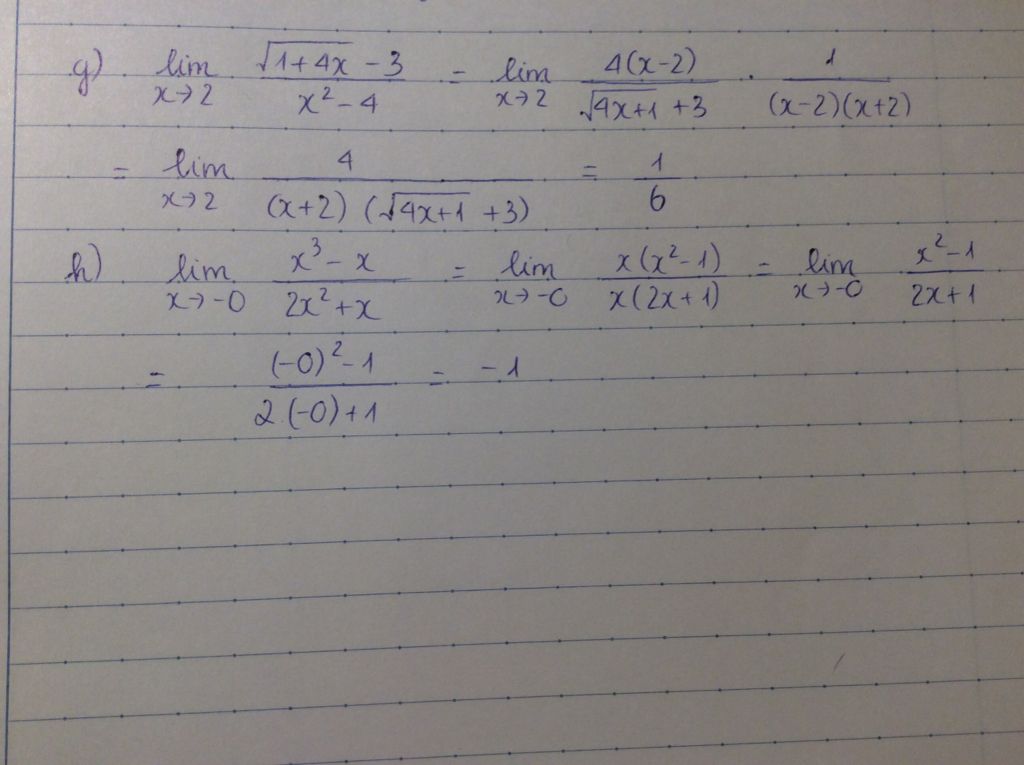 g) lim x→2 (√(1+4x) - 3)/(x² - 4) = lim x→2 4(x-2)/(√(4x+1) + 3) · 1/((x-2)(x+2))
= lim x→2 4/((x+2)(√(4x+1) + 3)) = 1/6
h) lim x→-0 (x³ - x)/(2x² + x) = lim x→-0 x(x²-1)/x(2x+1) = lim x→-0 (x²-1)/(2x+1)
= ((-0)² - 1)/(2.(-0)+1) = -1